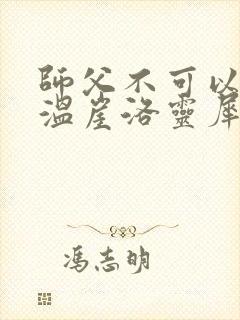 師父不可以
溫崖洛靈犀
馮志明